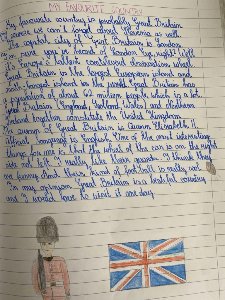 MY FAVOURITE COUNTRY
My favourite country is probably Great Britain
of course we can't forget about as well.
The capital city of Great Britain is London.
For me, you in friend of London Eye, right? Well
it's Europe's tallest cantilevered observation wheel.
Great Britain is the largest European island and
ninth-largest island in the world. Great Britain has
a population of about 62 million people which is a lot.
Great Britain (England, Scotland, Wales) and Northern
Ireland together constitute the United Kingdom.
The queen of Great Britain is Queen Elizabeth II.
Official language is English. One of the most interesting
things for me is that the wheel of the car is on the right
side not left. I really like their guards. I think they
are funny about their kind of football is really cool.
In my opinion Great Britain is a beautiful country
and I would love to visit it one day.